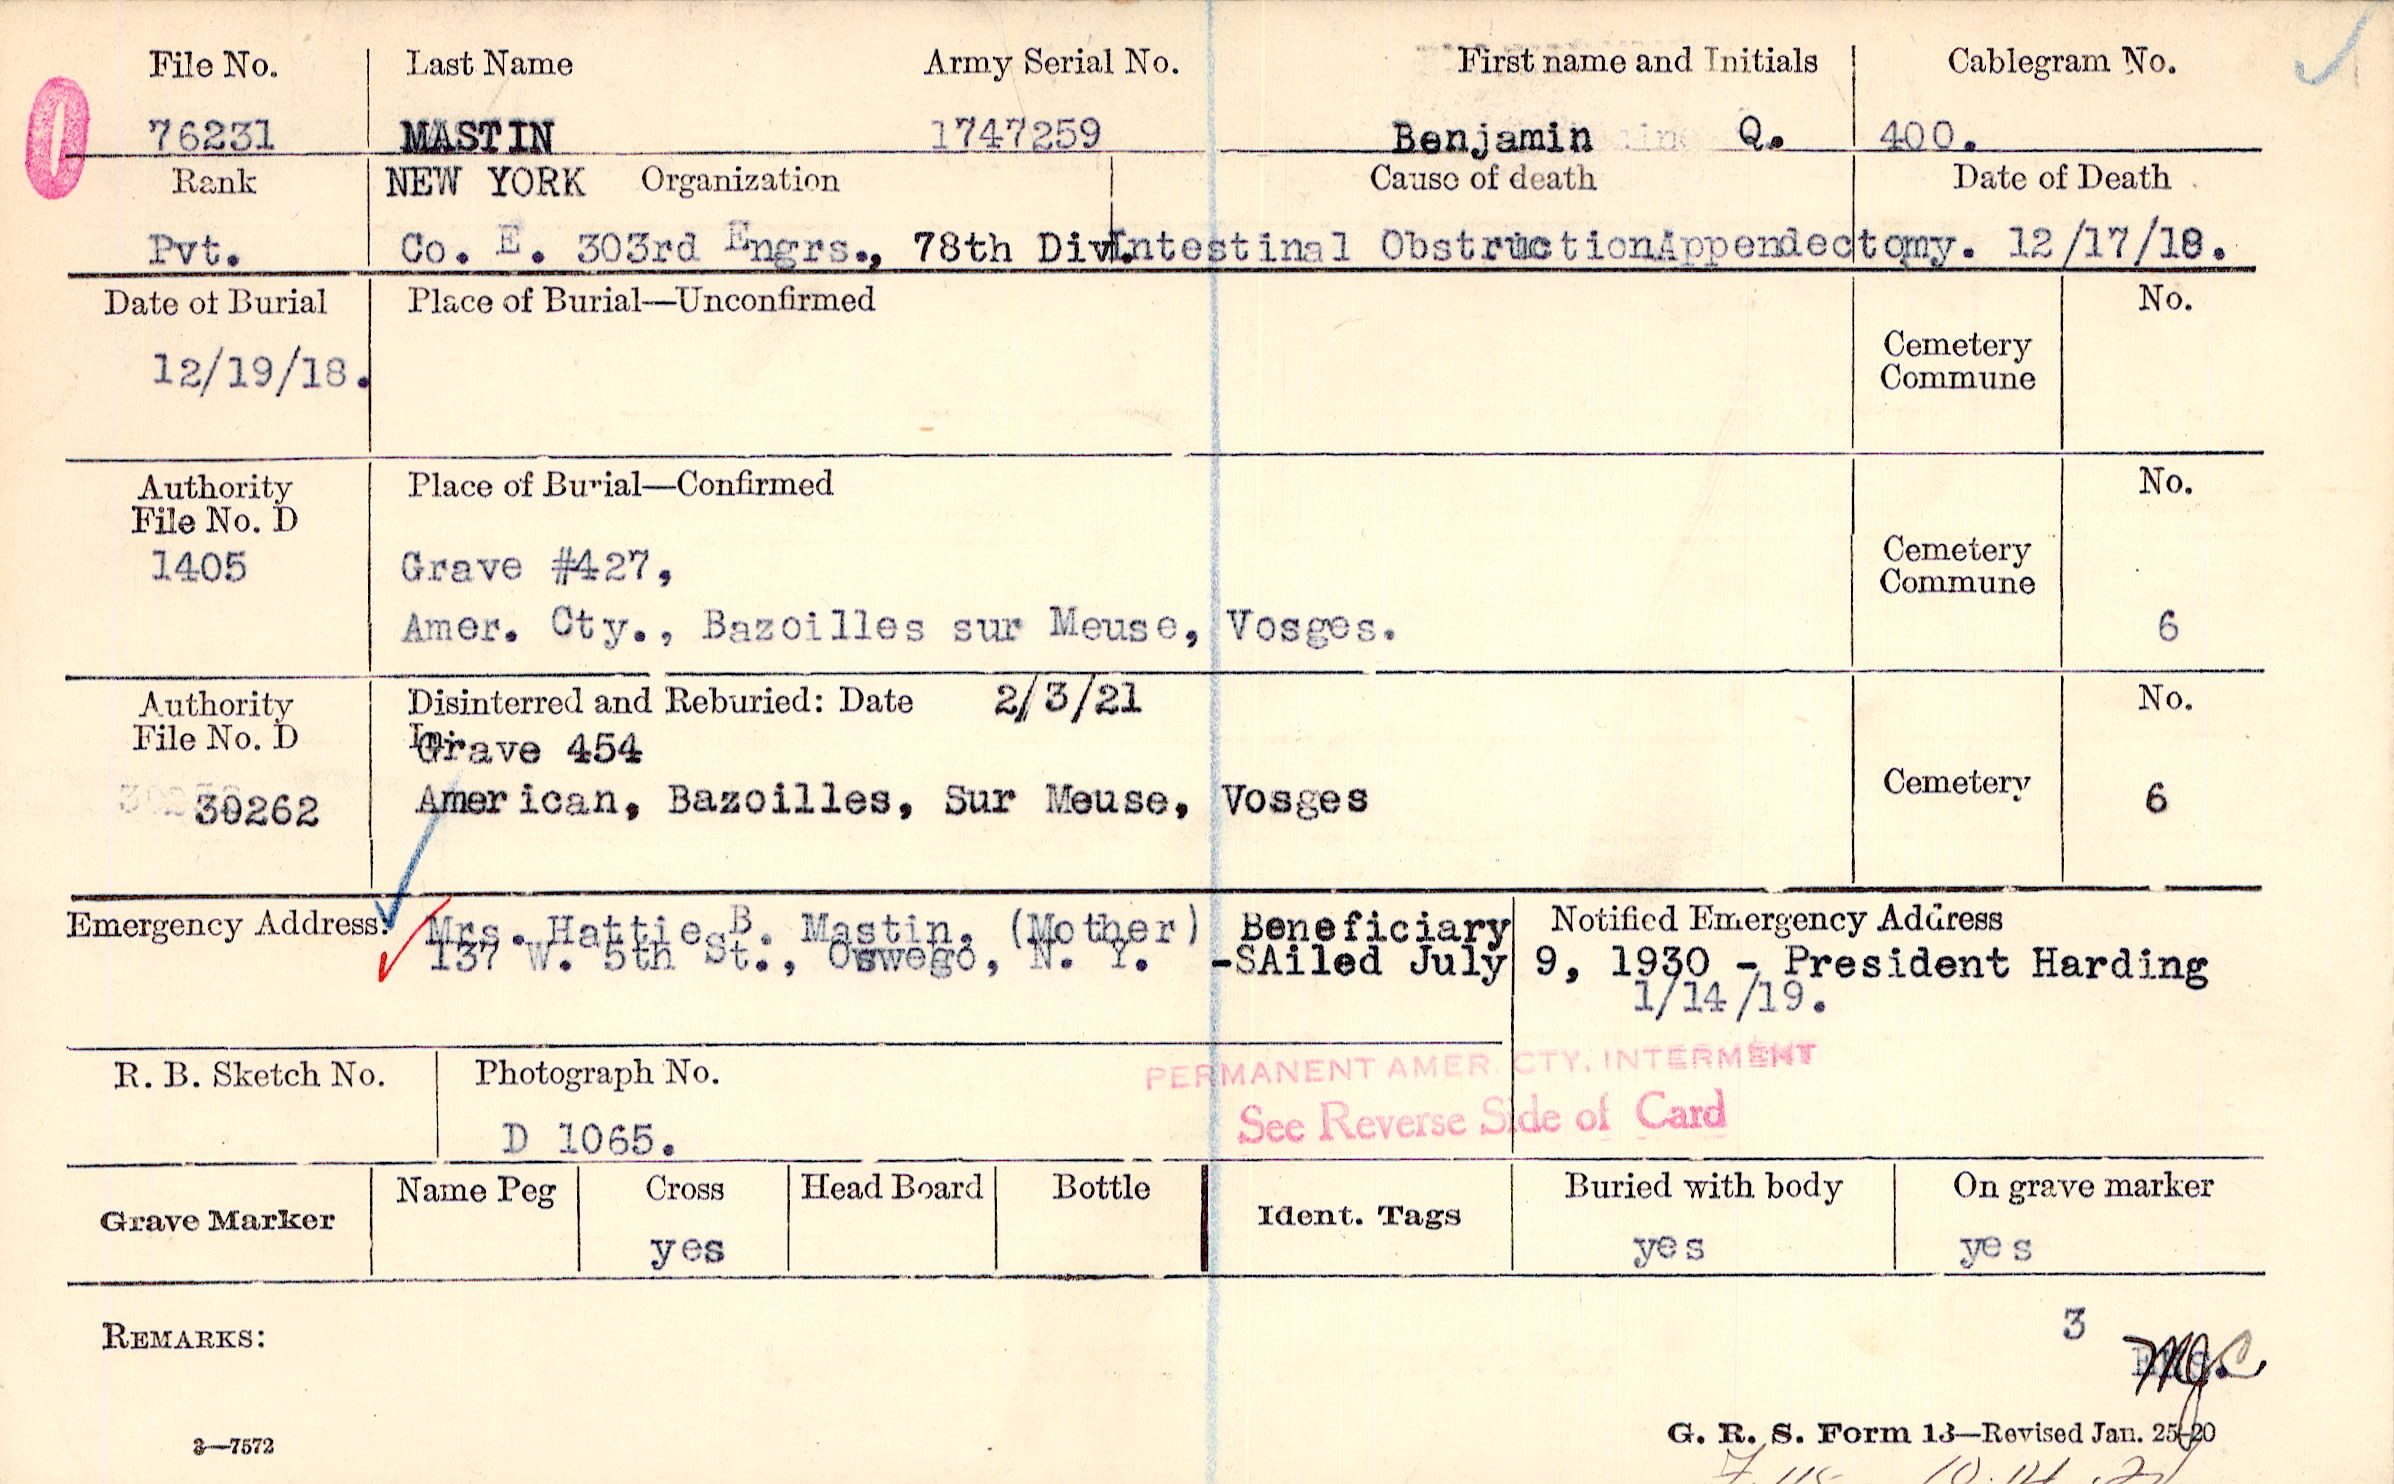 File No. Last Name Army Serial No. First name and Initials Cablegram No.
76231 MASTIN 1747259 Benjamin Q. 400.
Rank NEW YORK Organization Cause of death Date of Death
Pvt. Co. E. 303rd Engrs., 78th Div. Intestinal Obstruction Appendectomy. 12/17/18.
Date of Burial Place of Burial—Unconfirmed No.
12/19/18.
Cemetery
Commune
Authority Place of Burial—Confirmed No.
File No. D
1405 Grave #427,
Cemetery
Commune
Amer. Cty., Bazoilles sur Meuse, Vosges. 6
Authority Disinterred and Reburied: Date 2/3/21 No.
File No. D In:
Grave 454
Cemetery
30262 American, Bazoilles, Sur Meuse, Vosges 6
Emergency Address: Mrs. Hattie B. Mastin, (Mother) Beneficiary Notified Emergency Address
137 W. 5th St., Oswego, N. Y. -SAiled July 9, 1930 - President Harding
1/14/19.
PERMANENT AMER. CTY. INTERMENT
R. B. Sketch No. Photograph No.
See Reverse Side of Card
D 1065.
Grave Marker Name Peg Cross Head Board Bottle Ident. Tags Buried with body On grave marker
yes yes yes
3
REMARKS:
3—7572 G. R. S. Form 13—Revised Jan. 25-20